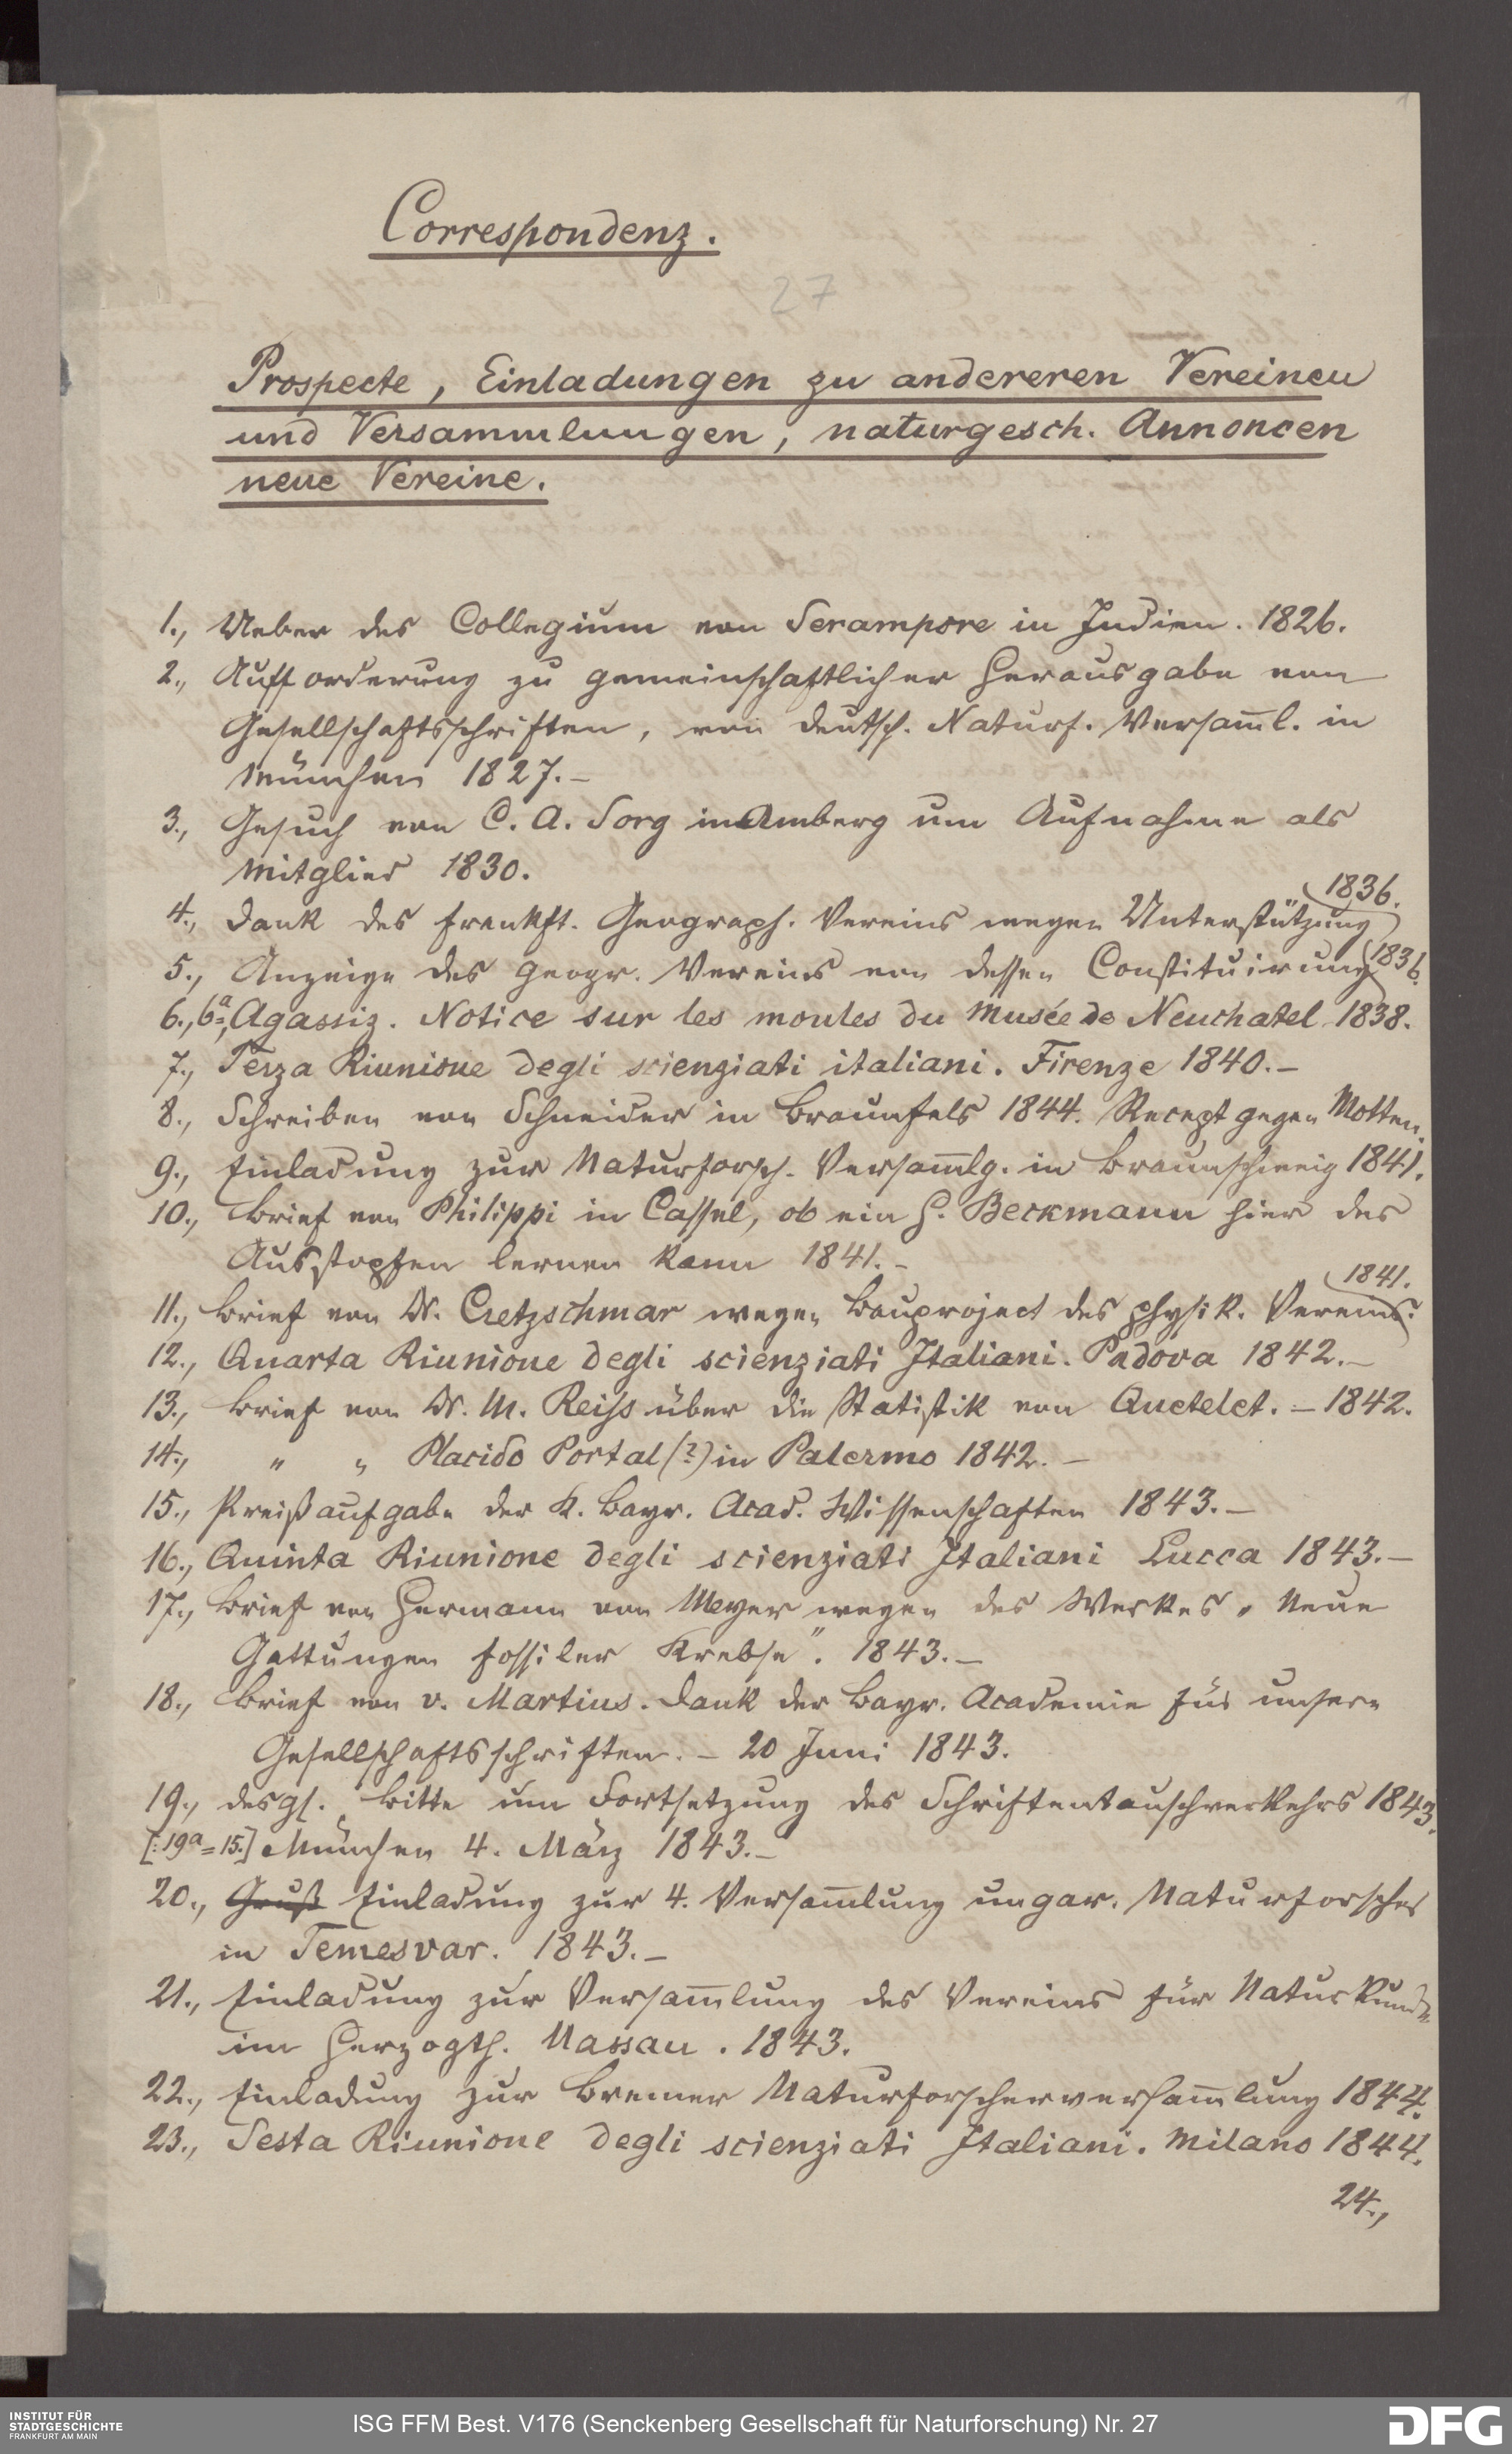 1
Correspondenz.
27
Prospecte, Einladungen zu andereren Vereinen
und Versammlungen, naturgesch. Annoncen
neue Vereine.
1., Ueber das Collegium von Serampore in Indien. 1826.
2., Aufforderung zu gemeinschaftlicher Herausgabe von
Gesellschaftsschriften, von deutsch. Naturf. Versam̄l. in
München 1827.–
3., Gesuch von C. A. Sorg in Amberg um Aufnahme als
Mitglied 1830.
1836.
4., Dank des Frankft. Geograph. Vereins wegen Unterstützung
5., Anzeige des Geogr. Vereins von dessen Constituirung 1836.
6., 6a=, Agassiz. Notice sur les moules du Musée de Neuchatel 1838.
7., Terza Riunione degli scienziati italiani. Firenze 1840.–
8., Schreiben von Schneider in Braunfels 1844. Recept gegen Motten.
9., Einladung zur Naturforsch. Versam̄lg. in Braunschweig 1841.
10., Brief von Philippi in Cassel, ob ein H. Beckmann hier das
Ausstopfen lernen kann 1841.–
1841.
11., Brief von Dr. Cretzschmar wegen Bauproject des physik. Vereins.
12., Quarta Riunione degli scienziati Italiani. Padova 1842.–
13., Brief von Dr. M. Reiss über die Statistik von Quetelet. – 1842.
14., " " Placido Portal (?) in Palermo 1842.–
15., Preißaufgabe der K. Bayr. Acad. Wissenschaften 1843.–
16., Quinta Riunione degli scienziati Italiani Lucca 1843.–
17., Brief von Hermann von Meyer wegen des Werkes „Neue
Gattungen fossiler Krebse". 1843.–
18., Brief von v. Martius. Dank der Bayr. Academie für unsere
Gesellschaftsschriften. – 20 Juni 1843.
19., desgl. Bitte um Fortsetzung des Schriftentauschverkehrs 1843.
[:19a = 15:] München 4. März 1843.–
20., Gruß Einladung zur 4. Versam̄lung ungar. Naturforscher
in Temesvar. 1843.–
21., Einladung zur Versam̄lung des Vereins für Naturkunde
im Herzogth. Nassau. 1843.
22., Einladung zur Bremer Naturforscherversam̄lung 1844.
23., Sesta Riunione degli scienziati Italiani. Milano 1844.
24.,
INSTITUT FÜR
STADTGESCHICHTE
FRANKFURT AM MAIN
ISG FFM Best. V176 (Senckenberg Gesellschaft für Naturforschung) Nr. 27
DFG